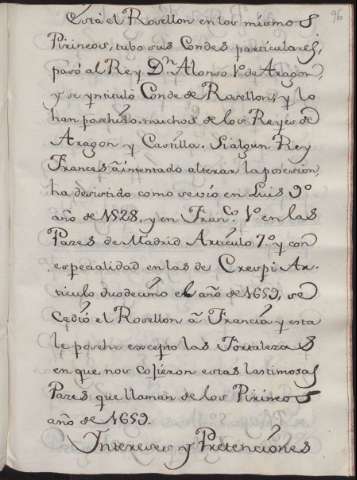 96
Está el Rosellon en los mismos
Pirineos, tubo sus Condes particulares,
pasó al Rey Dn. Alonso 1º de Aragon
y se yntituló Conde de Rosellon, y lo
han posehido muchos de los Reyes de
Aragon y Castilla. Si algun Rey
Frances a intentado alterar la posesion,
ha desistido como se vio en Luis 9º
año de 1528, y en Franco. 1º en las
Pazes de Madrid Artículo 7º y con
especialidad en las de Crespi Ar-
ticulo duodecimo el año de 1659, se
Cedió el Rosellon â Francia y esta
le posehe excepto las Fortalezas
en que nos cojieron estas lastimosas
Pazes que llaman de los Pirineos
año de 1659.
Intereses y Pretenciones